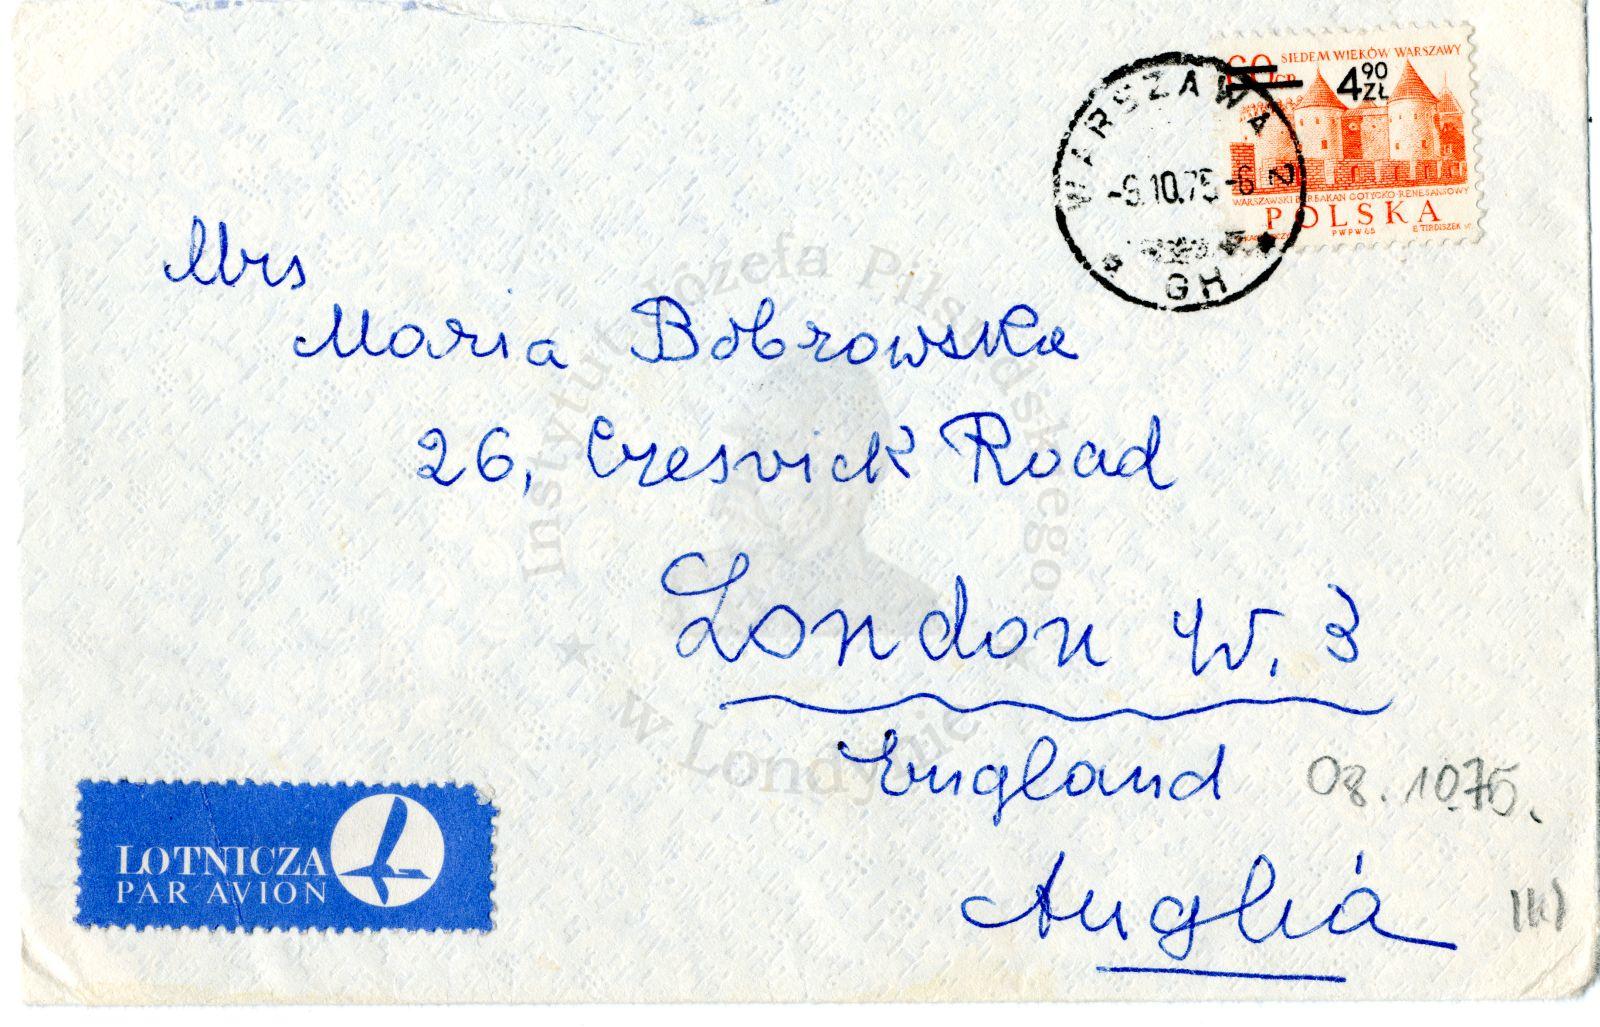 60 GR
SIEDEM WIEKÓW WARSZAWY
4 90 ZŁ
WARSZAWSKI BARBAKAN GOTYCKO-RENESANSOWY
POLSKA
PWPW 65
WARSZAWA 2
-9.10.75-6
GH
Mrs
Maria Bobrowska
26, Cresvick Road
London W. 3
England
08.10.75.
Anglia
LOTNICZA
PAR AVION
Instytut Józefa Piłsudskiego
w Londynie